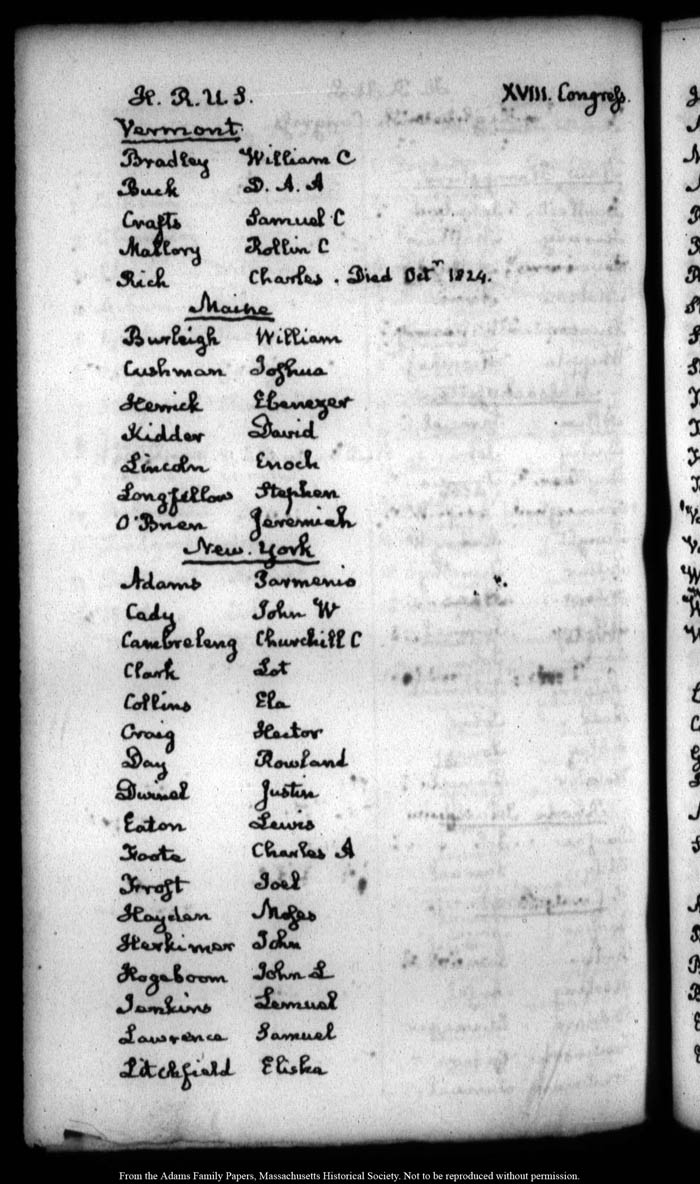 H. R. U S. XVIII. Congress.
Vermont.
Bradley William C
Buck D. A. A
Crafts Samuel C
Mallory Rollin C
Rich Charles. Died Octr 1824.
Maine
Burleigh William
Cushman Joshua
Herrick Ebenezer
Kidder David
Lincoln Enoch
Longfellow Stephen
O'Brien Jeremiah
New. York
Adams Parmenio
Cady John W
Cambreleng Churchill C
Clark Lot
Collins Ela
Craig Hector
Day Rowland
Dwinel Justin
Eaton Lewis
Foote Charles A
Frost Joel
Hayden Moses
Herkimer John
Hogeboom John L
Jenkins Lemuel
Lawrence Samuel
Litchfield Elisha
From the Adams Family Papers, Massachusetts Historical Society. Not to be reproduced without permission.